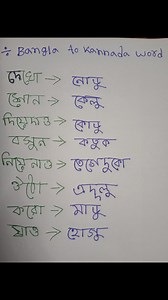 ÷ Bangla to Kannada word
দেখো → নোডু
শোন → কেলু
দিয়েদাও → কোডু
বসুন → কুতুক
নিয়ে নাও → তেগেদুকো
ওঠো → এদ্দলু
করো → মাডু
যাও → হোগু